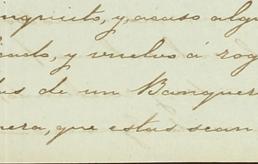 nquieto, y, acaso algu
ando, y vuelvo á rog
das de un Banquer
nera, que estas sean